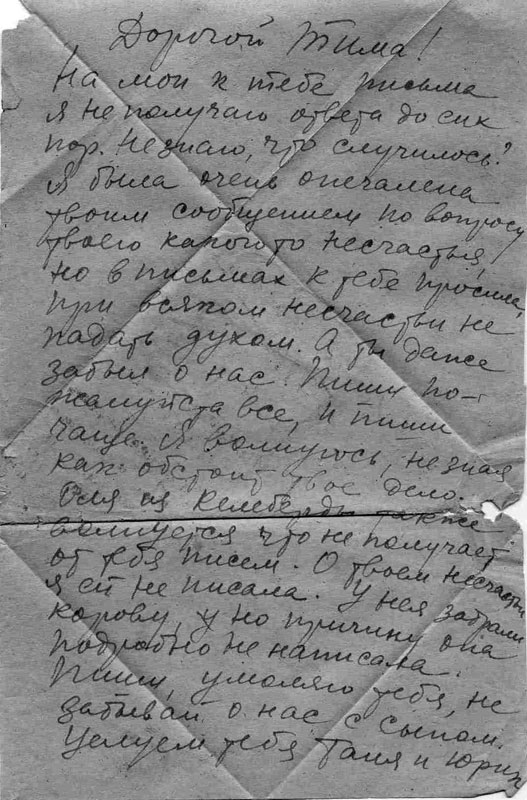 Дорогой Тима!
На мои к тебе письма
я не получаю ответа до сих
пор. Не знаю, что случилось?
Я была очень опечалена
твоим сообщением по вопросу
твоего какого то несчастья,
но в письмах к тебе просила,
при всяком несчастьи не
падать духом. А ты даже
забыл о нас. Пиши по-
жалуйста все, и пиши
чаще. Я волнуюсь, не зная
как обстоит твое дело.
Оля из Келеберды также
волнуется что не получает
от тебя писем. О твоем несчастьи
я ей не писала. У нея забрали
корову, у но причину она
подробно не написала.
Пиши, умоляю тебя, не
забывай о нас с сыном.
Целуем тебя Таля и Юрик